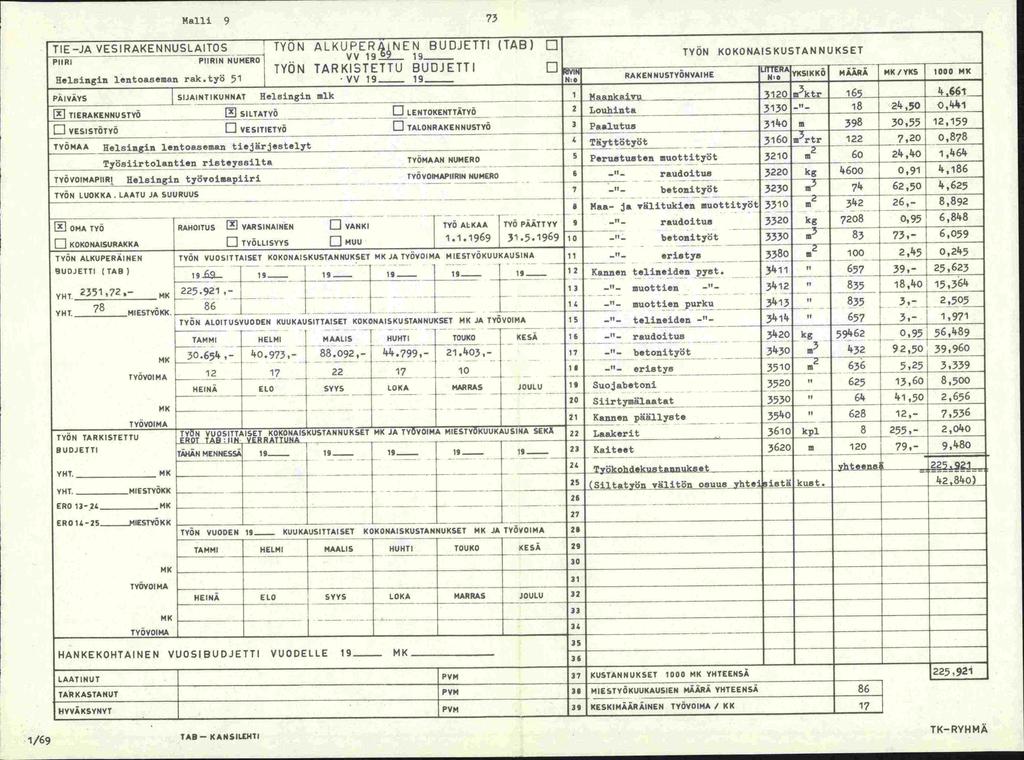 Malli 9
73
TIE-JA VESIRAKENNUSLAITOS
PIIRI PIIRIN NUMERO
Helsingin lentoaseman rak.työ 51
TYÖN ALKUPERÄINEN BUDJETTI (TAB) ☐
VV 19 69 19
TYÖN TARKISTETTU BUDJETTI ☐
VV 19 19
PÄIVÄYS SIJAINTIKUNNAT Helsingin mlk
☒ TIERAKENNUSTYÖ ☒ SILTATYÖ ☐ LENTOKENTTÄTYÖ
☐ VESISTÖTYÖ ☐ VESITIETYÖ ☐ TALONRAKENNUSTYÖ
TYÖMAA Helsingin lentoaseman tiejärjestelyt
Työsiirtolantien risteyssilta TYÖMAAN NUMERO
TYÖVOIMAPIIRI Helsingin työvoimapiiri TYÖVOIMAPIIRIN NUMERO
TYÖN LUOKKA, LAATU JA SUURUUS
☒ OMA TYÖ RAHOITUS ☒ VARSINAINEN ☐ VANKI TYÖ ALKAA TYÖ PÄÄTTYY
☐ KOKONAISURAKKA ☐ TYÖLLISYYS ☐ MUU 1.1.1969 31.5.1969
TYÖN ALKUPERÄINEN BUDJETTI (TAB)
YHT. 2351,72,- MK
YHT. 78 MIESTYÖKK.
TYÖN VUOSITTAISET KOKONAISKUSTANNUKSET MK JA TYÖVOIMA MIESTYÖKUUKAUSINA
19 69 19 19 19 19 19
225.921,-
86
TYÖN ALOITUSVUODEN KUUKAUSITTAISET KOKONAISKUSTANNUKSET MK JA TYÖVOIMA
TAMMI HELMI MAALIS HUHTI TOUKO KESÄ
MK 30.654,- 40.973,- 88.092,- 44.799,- 21.403,-
TYÖVOIMA 12 17 22 17 10
HEINÄ ELO SYYS LOKA MARRAS JOULU
MK
TYÖVOIMA
TYÖN TARKISTETTU BUDJETTI
TYÖN VUOSITTAISET KOKONAISKUSTANNUKSET MK JA TYÖVOIMA MIESTYÖKUUKAUSINA SEKÄ
EROT TAB:IIN VERRATTUNA
TÄHÄN MENNESSÄ 19 19 19 19 19
YHT. MK
YHT. MIESTYÖKK
ERO 13-24 MK
ERO 14-25 MIESTYÖKK
TYÖN VUODEN 19 KUUKAUSITTAISET KOKONAISKUSTANNUKSET MK JA TYÖVOIMA
TAMMI HELMI MAALIS HUHTI TOUKO KESÄ
MK
TYÖVOIMA
HEINÄ ELO SYYS LOKA MARRAS JOULU
MK
TYÖVOIMA
HANKEKOHTAINEN VUOSIBUDJETTI VUODELLE 19 MK
LAATINUT PVM
TARKASTANUT PVM
HYVÄKSYNYT PVM
TYÖN KOKONAISKUSTANNUKSET
RIVIN N:o RAKENNUSTYÖNVAIHE LITTERA N:o YKSIKKÖ MÄÄRÄ MK/YKS 1000 MK
1 Maankaivu 3120 m3ktr 165 4,661
2 Louhinta 3130 -"- 18 24,50 0,441
3 Paalutus 3140 m 398 30,55 12,159
4 Täyttötyöt 3160 m3rtr 122 7,20 0,878
5 Perustusten muottityöt 3210 m2 60 24,40 1,464
6 -"- raudoitus 3220 kg 4600 0,91 4,186
7 -"- betonityöt 3230 m3 74 62,50 4,625
8 Maa- ja välitukien muottityöt 3310 m2 342 26,- 8,892
9 -"- raudoitus 3320 kg 7208 0,95 6,848
10 -"- betonityöt 3330 m3 83 73,- 6,059
11 -"- eristys 3380 m2 100 2,45 0,245
12 Kannen telineiden pyst. 3411 " 657 39,- 25,623
13 -"- muottien -"- 3412 " 835 18,40 15,364
14 -"- muottien purku 3413 " 835 3,- 2,505
15 -"- telineiden -"- 3414 " 657 3,- 1,971
16 -"- raudoitus 3420 kg 59462 0,95 56,489
17 -"- betonityöt 3430 m3 432 92,50 39,960
18 -"- eristys 3510 m2 636 5,25 3,339
19 Suojabetoni 3520 " 625 13,60 8,500
20 Siirtymälaatat 3530 " 64 41,50 2,656
21 Kannen päällyste 3540 " 628 12,- 7,536
22 Laakerit 3610 kpl 8 255,- 2,040
23 Kaiteet 3620 m 120 79,- 9,480
24 Työkohdekustannukset yhteensä 225,921
25 (Siltatyön välitön osuus yhteisistä kust. 42,840)
26
27
28
29
30
31
32
33
34
35
36
37 KUSTANNUKSET 1000 MK YHTEENSÄ 225,921
38 MIESTYÖKUUKAUSIEN MÄÄRÄ YHTEENSÄ 86
39 KESKIMÄÄRÄINEN TYÖVOIMA / KK 17
1/69
TAB – KANSILEHTI
TK-RYHMÄ